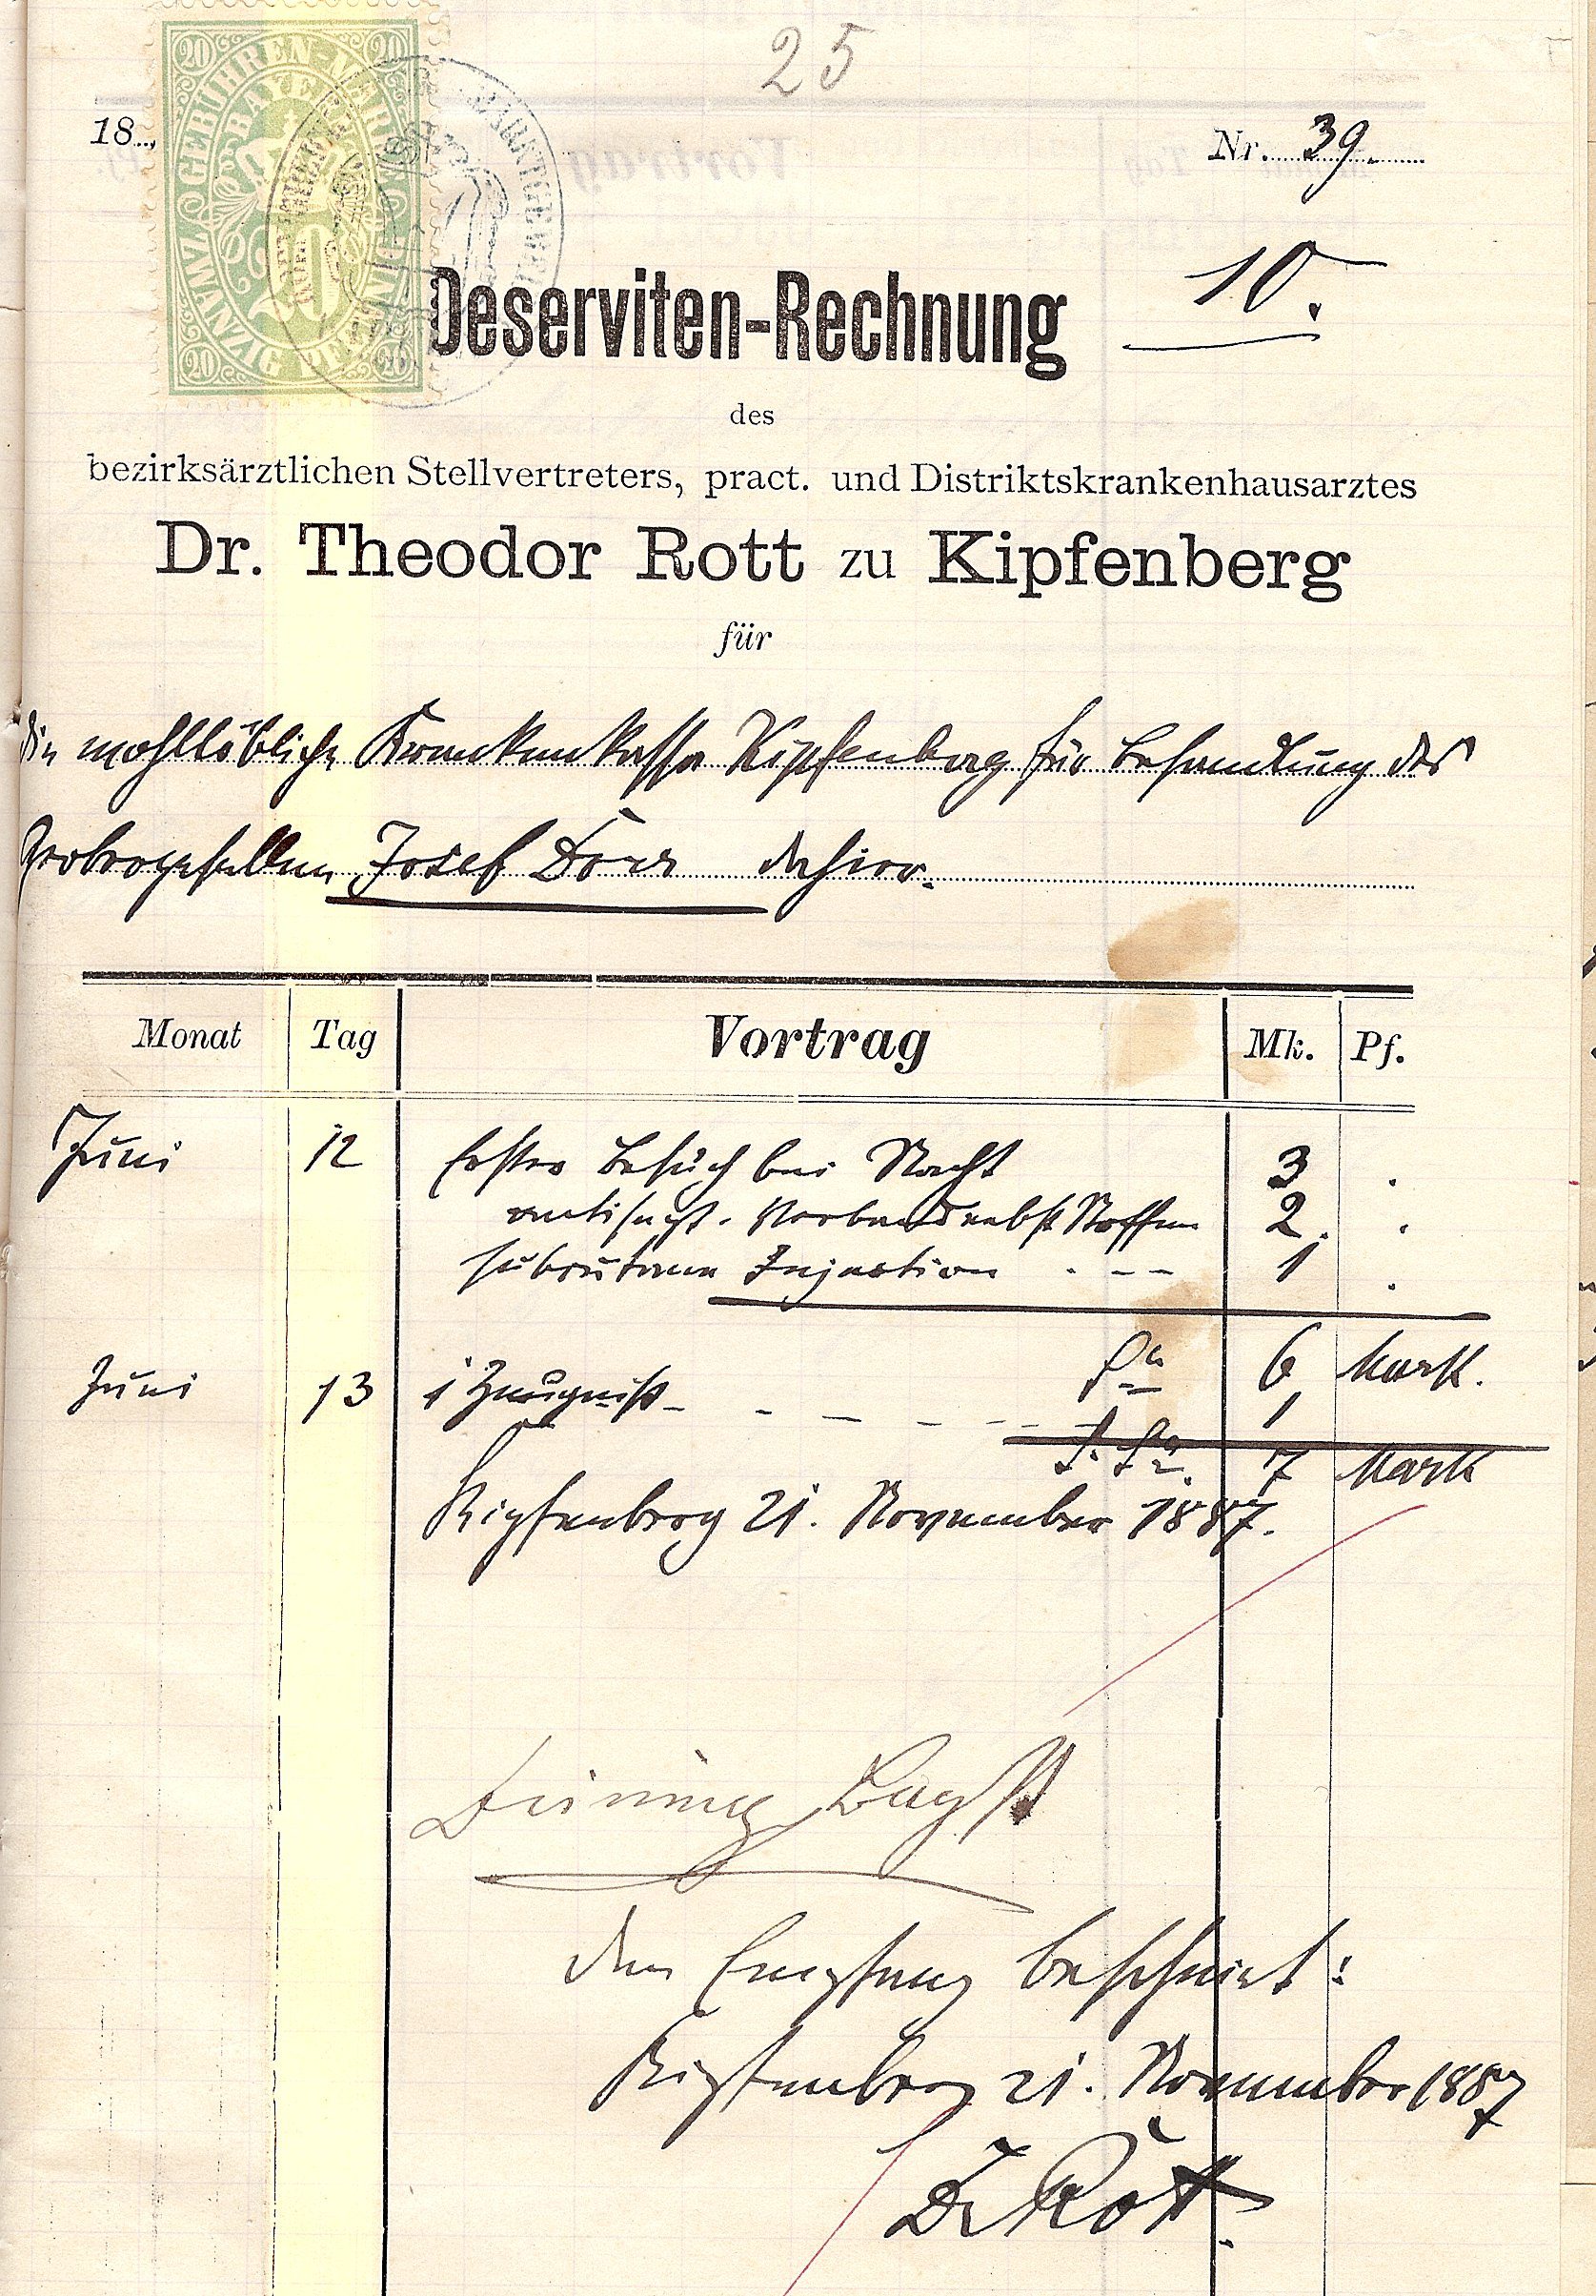 25
18...
Nr. 39.
20 20
GEBÜHREN-MARKE
BAYER.
ZWANZIG PFENNIG
20
20 20
10.
Deserviten-Rechnung
des
bezirksärztlichen Stellvertreters, pract. und Distriktskrankenhausarztes
Dr. Theodor Rott zu Kipfenberg
für
die wohllöbliche Krankenkassa Kipfenberg für Behandlung des
Gerbergesellen Josef Dörr dahier.
Monat Tag Vortrag Mk. Pf.
Juni 12 Erster Besuch bei Nacht 3 .
antisept. Verband nebst Stoffen 2. .
subcutane Injection . - - 1 .
Sa 6 Mark.
Juni 13 1 Zeugniß - - - - - 1
S. Sa. 7 Mark
Kipfenberg 21. November 1887.
den Empfang bescheint:
Kipfenberg 21. November 1887
Dr Rott.